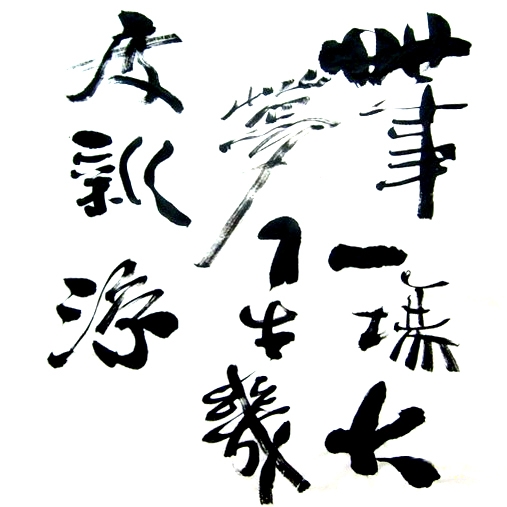 世事一場大
夢人生幾
度新涼